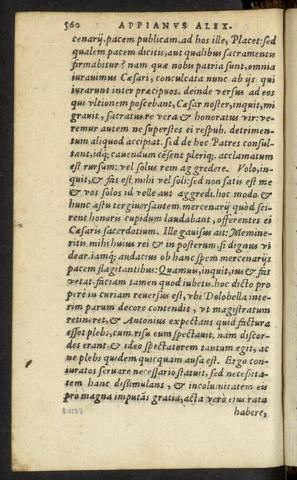 560 APPIANVS ALEX.
cenarij, pacem publicam. ad hos ille, Placet: sed
qualem pacem dicitis, aut qualibus sacramentis
firmabitur? nam quæ nobis patria sunt, omnia
iurauimus Cæsari, conculcata nunc ab ijs qui
iurarunt inter præcipuos. deinde versus ad eos
qui vltionem poscebant, Cæsar noster, inquit, mi
grauit, sacratus re vera & honoratus vir: ve-
remur autem ne superstes ei respub. detrimen-
tum aliquod accipiat. sed de hoc Patres consul-
tant, idq; cauendum cēsent pleriq;. acclamatum
est rursum: vel solus rem aggredere. Volo, in-
quit, & fas est mihi vel soli: sed non satis est me
& vos solos id velle aut aggredi. hoc modo &
hunc astu tergiuersantem mercenarij quòd sci-
rent honoris cupidum laudabant, offerentes ei
Cæsaris sacerdotium. Ille gauisus ait: Memine-
ritis. mihi huius rei & in posterum. si dignus vi
dear. iamq; audacius ob hanc spem mercenarijs
pacem flagitantibus: Quamuis, inquit, ius & fas
vetat. faciam tamen quod iubetis. hoc dicto pro
perè in curiam reuersus est, vbi Dolobella inte-
rim parum decore contendit, vt magistratum
retineret, & Antonius expectans quid factura
esset plebs, cum risu eum spectauit. nam discor-
des erant. & ideo spectatorem tantum egit, ac
ne plebs quidem quicquam ausa est. Ergo con-
iuratos seruare necessariò statuit, sed necessita-
tem hanc dissimulans, & incolumitatem eis
pro magna imputās gratia, acta verò eius rata
habere,